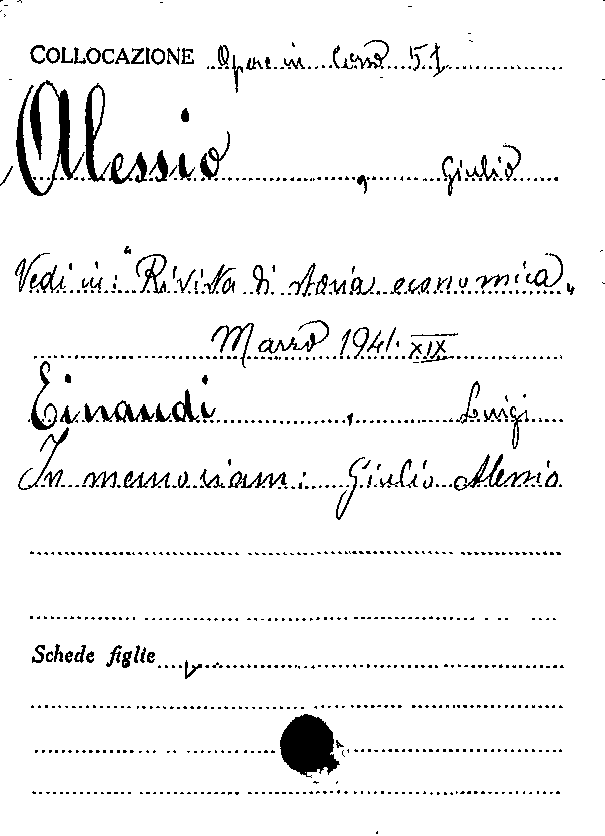 COLLOCAZIONE Opere in Cons 51
Alessio, Giulio
Vedi in: "Rivista di storia economica"
Marzo 1941. XIX
Einaudi, Luigi
In memoriam: Giulio Alessio
Schede figlie